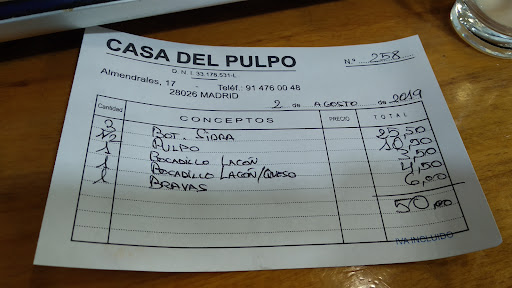 CASA DEL PULPO
D. N. I. 33.178.531-L
Nº 258
Almendrales, 17 - Teléf.: 91 476 00 48
28026 MADRID
2 de AGOSTO de 2019
Cantidad CONCEPTOS PRECIO TOTAL
3 BOT. SIDRA 25,50
1/2 PULPO 10,50
1 BOCADILLO LACÓN 3,50
1 BOCADILLO LACÓN/QUESO 4,50
1 BRAVAS 6,00
50,00
IVA INCLUIDO